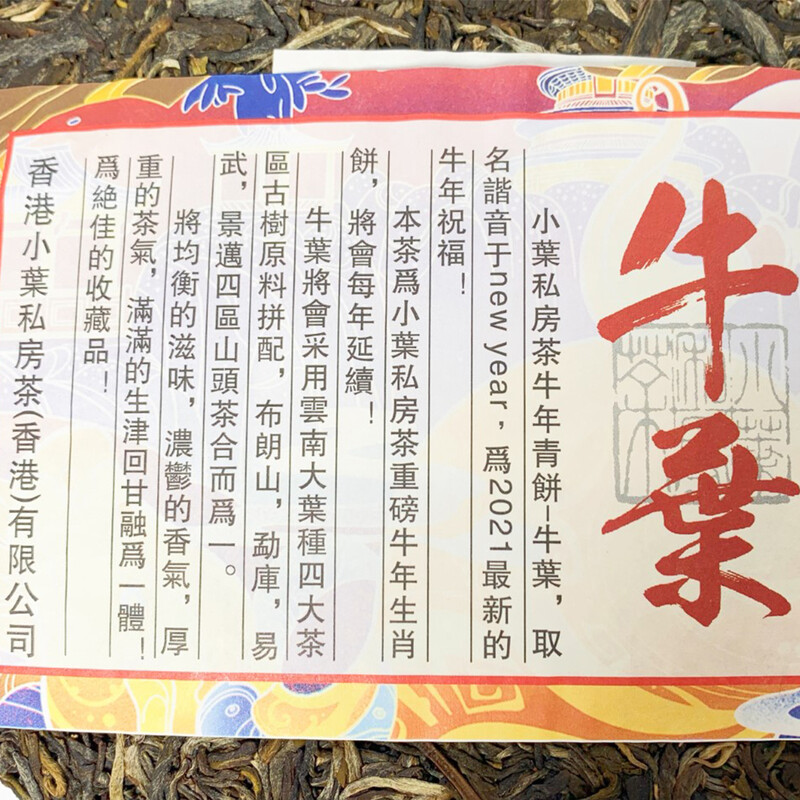 牛葉
小葉私房茶牛年青餅-牛葉，取
名諧音于new year，爲2021最新的
牛年祝福！
本茶爲小葉私房茶重磅牛年生肖
餅，將會每年延續！
牛葉將會采用雲南大葉種四大茶
區古樹原料拼配，布朗山，勐庫，易
武，景邁四區山頭茶合而爲一。
將均衡的滋味，濃鬱的香氣，厚
重的茶氣，滿滿的生津回甘融爲一體！
爲絶佳的收藏品！
香港小葉私房茶(香港)有限公司